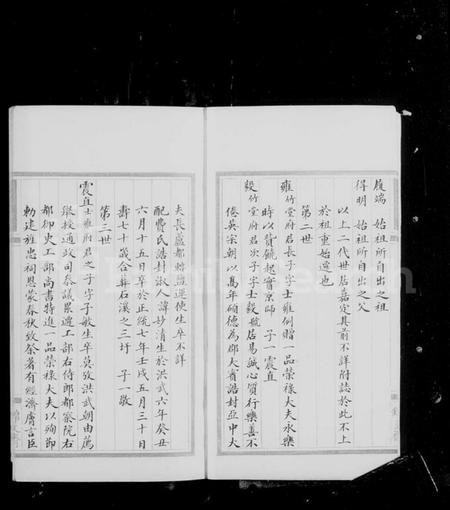 履端　始祖所自出之祖
得明　始祖所自出之父
以上二代世居嘉定其前不詳附誌於此不上
於祖重始遷也
第二世
雍竹堂府君長子字士雍例贈一品榮祿大夫永樂
時以貲饒起實京師　子一震直
毅竹堂府君次子字士毅號居易誠心質行樂善不
倦英宗朝以高年碩德為鄉大賓誥封亞中大
夫長蘆都轉鹽運使生卒不詳
配費氏誥封淑人諱妙清生於洪武六年癸丑
六月十五日卒於正統七年壬戌五月三十日
壽七十歲合葬石漢之三圩　子一敬
第三世
震直士雍府君之子字子敏生卒莫攷洪武朝由薦
舉授通政司參議累遷工部右侍郎都察院右
都御史工部尚書特進一品榮祿大夫以殉節
勅建旌忠祠恩蒙春秋致祭著有經濟膚言臣